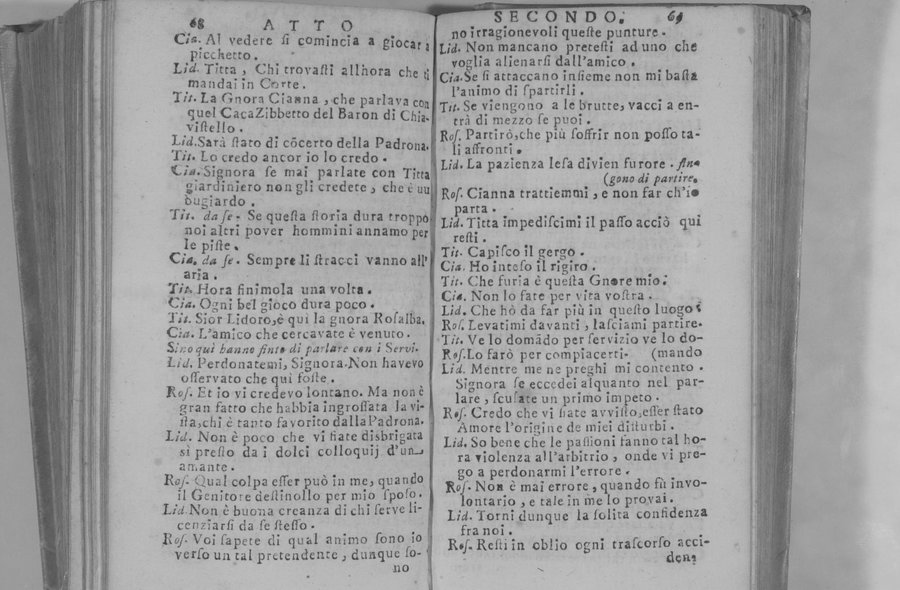 68 ATTO
Cia. Al vedere ſi comincia a giocar a
picchetto.
Lid. Titta, Chi trovaſti allhora che ti
mandai in Corte.
Tit. La Gnora Cianna, che parlava con
quel CacaZibbetto del Baron di Chia-
viſtello.
Lid. Sarà ſtato di cōcerto della Padrona.
Tit. Lo credo ancor io lo credo.
Cia. Signora ſe mai parlate con Titta
giardiniero non gli credete, che è uu
bugiardo.
Tit. da ſe. Se queſta ſtoria dura troppo
noi altri pover hommini annamo per
le piſte.
Cia. da ſe. Sempre li ſtracci vanno all'
aria.
Tit. Hora finimola una volta.
Cia. Ogni bel gioco dura poco.
Tit. Sior Lidoro, è qui la gnora Roſalba.
Cia. L'amico che cercavate è venuto.
Sino qui hanno finto di parlare con i Servi.
Lid. Perdonatemi, Signora. Non havevo
oſſervato che qui foſte.
Roſ. Et io vi credevo lontano. Ma non è
gran fatto che habbia ingroſſata la vi-
ſta, chi è tanto favorito dalla Padrona.
Lid. Non è poco che vi ſiate disbrigata
si preſto da i dolci colloquij d'un
amante.
Roſ. Qual colpa eſſer può in me, quando
il Genitore deſtinollo per mio ſpoſo.
Lid. Non è buona creanza di chi ſerve li-
cenziarſi da ſe ſteſſo.
Roſ. Voi ſapete di qual animo ſono io
verſo un tal pretendente, dunque ſo-
no
SECONDO. 69
no irragionevoli queſte punture.
Lid. Non mancano preteſti ad uno che
voglia alienarſi dall'amico.
Cia. Se ſi attaccano inſieme non mi baſta
l'animo di ſpartirli.
Tit. Se viengono a le brutte, vacci a en-
trà di mezzo ſe puoi.
Roſ. Partirò, che più ſoffrir non poſſo ta-
li affronti.
Lid. La pazienza leſa divien furore. fin-
(gono di partire.
Roſ. Cianna trattiemmi, e non far ch'io
parta.
Lid. Titta impediſcimi il paſſo acciò qui
reſti.
Tit. Capiſco il gergo.
Cia. Ho inteſo il rigiro.
Tit. Che furia è queſta Gnore mio.
Cia. Non lo fate per vita voſtra.
Lid. Che hò da far più in queſto luogo?
Roſ. Levatimi davanti, laſciami partire.
Tit. Ve lo domādo per ſervizio ve lo do-
Roſ. Lo farò per compiacerti. (mando
Lid. Mentre me ne preghi mi contento.
Signora ſe eccedei alquanto nel par-
lare, ſcuſate un primo impeto.
Roſ. Credo che vi ſiate avviſto, eſſer ſtato
Amore l'origine de miei diſturbi.
Lid. So bene che le paſſioni fanno tal ho-
ra violenza all'arbitrio, onde vi pre-
go a perdonarmi l'errore.
Roſ. Non è mai errore, quando fù invo-
lontario, e tale in me lo provai.
Lid. Torni dunque la ſolita confidenza
fra noi.
Roſ. Reſti in oblio ogni traſcorſo acci-
den-